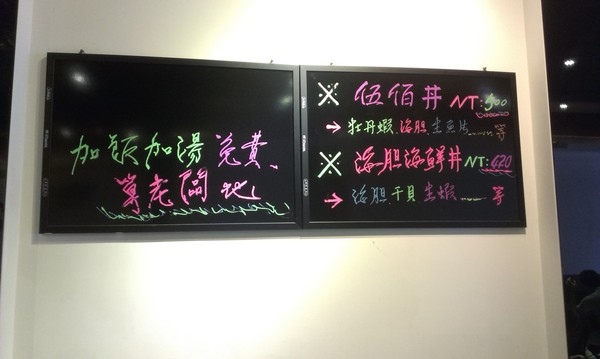 加飯加湯免費
算老闆的
※ 伍佰丼 NT:500
→ 牡丹蝦.海胆.生魚片......等
※ 海胆海鮮丼 NT:620
→ 海胆.干貝.生蝦......等